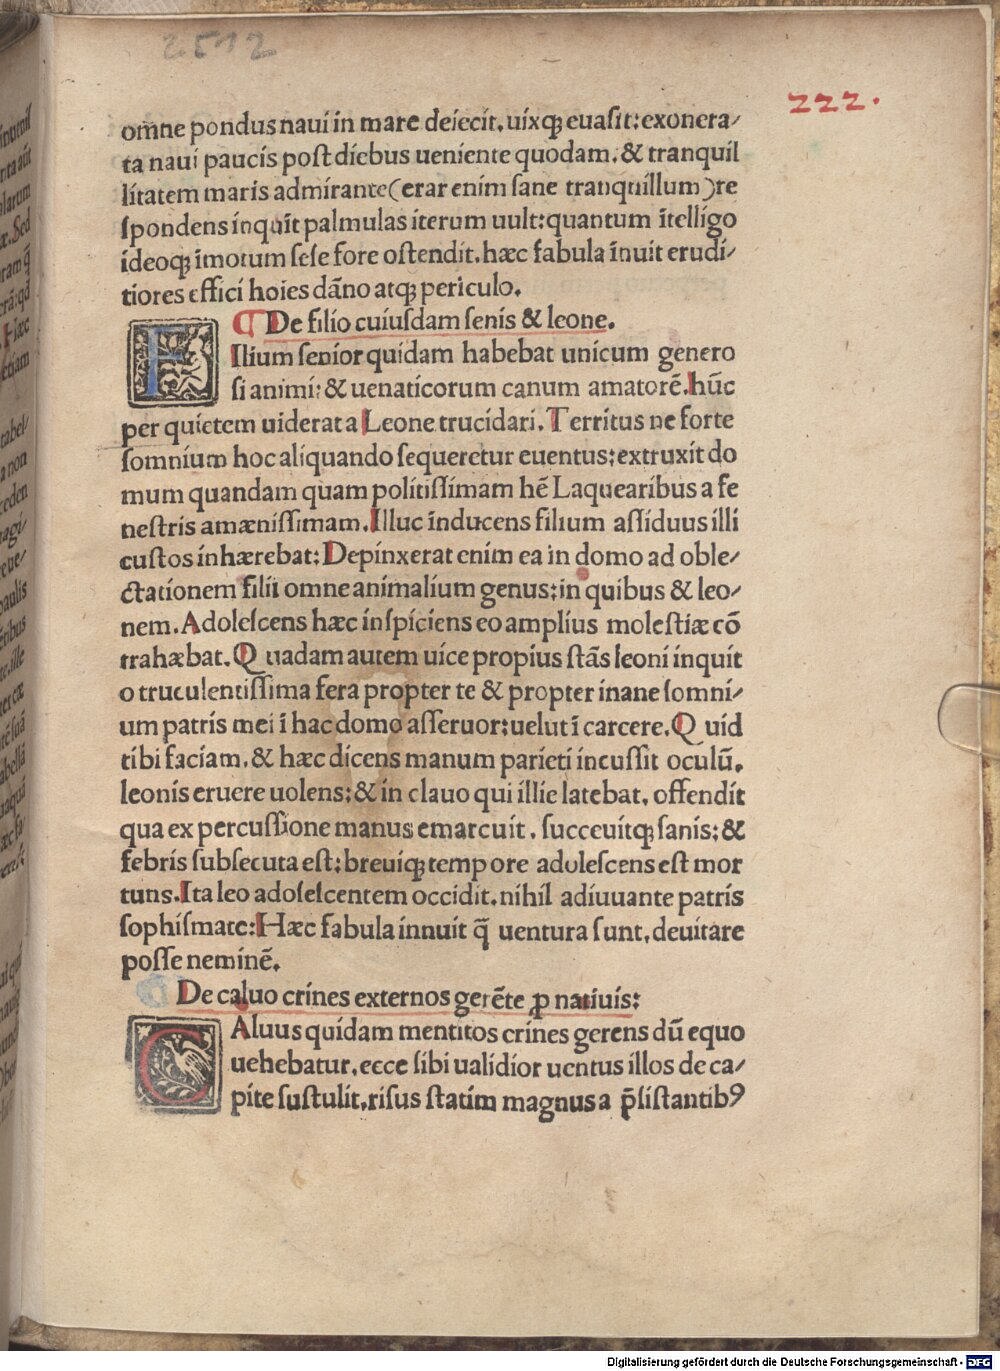 2512
222.
omne pondus naui in mare deiecit. uixqꝫ euasit: exonera/
ta naui paucis post diebus ueniente quodam. & tranquil
litatem maris admirante (erar enim sane tranquillum) re
spondens inquīt palmulas iterum uult: quantum ītelligo
ideoqꝫ imotum sese fore ostendit. hæc fabula īnuit erudi/
tiores effici hoies dāno atqꝫ periculo.
¶ De filio cuiusdam senis & leone.
FIlium senior quidam habebat unicum genero
si animi: & uenaticorum canum amatorē. hūc
per quietem uiderat a Leone trucidari. Territus ne forte
somnium hoc aliquando sequeretur euentus: extruxit do
mum quandam quam politissimam hē Laquearibus a fe
nestris amænissimam. Illuc īnducens filium assiduus illi
custos inhærebat: Depinxerat enim ea in domo ad oble/
ctationem filii omne animalium genus: in quibus & leo/
nem. Adolescens hæc inspiciens eo amplius molestiæ cō
trahæbat. Quadam autem uice propius stās leoni inquit
o truculentissima fera propter te & propter inane somni/
um patris mei ī hac domo asseruor: uelut ī carcere. Quid
tibi faciam. & hæc dicens manum parieti incussit oculū.
leonis eruere uolens: & in clauo qui illic latebat. offendit
qua ex percussione manus emarcuit. succeuitqꝫ sanis: &
febris subsecuta est: breuiqꝫ tempore adolescens est mor
tuns. Ita leo adolelcentem occidit. nihil adiuuante patris
sophismate: Hæc fabula innuit q̄ uentura sunt. deuitare
posse neminē.
De caluo crines externos gerēte ꝓ natiuis:
CAluus quidam mentitos crines gerens dū equo
uehebatur. ecce sibi ualidior uentus illos de ca/
pite sustulit. risus statim magnus a p̄sistantibꝰ
Digitalisierung gefördert durch die Deutsche Forschungsgemeinschaft - DFG